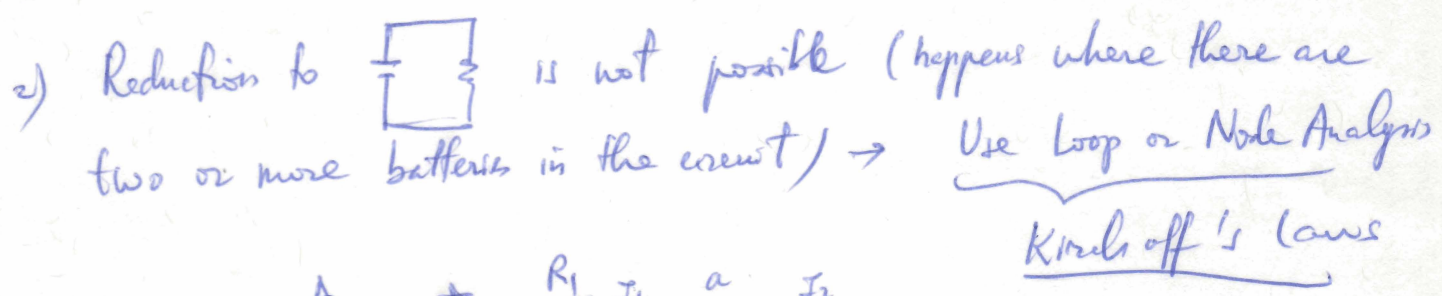 2) Reduction to is not possible (happens where there are
two or more batteries in the circuit) → Use Loop or Node Analysis
Kirchoff's laws
R1 I1 a I2